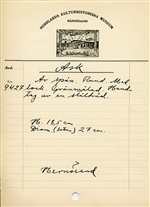 HUDIKSVALLS KULTURHISTORISKA MUSEUM
HÄRNÖSAND
Ask
Av spån. Rund. Med
9427. lock. Grönmålad. Hand-
tag av en
H. 18,5 cm
Diam (botten) 27 cm.
?
Hernösand